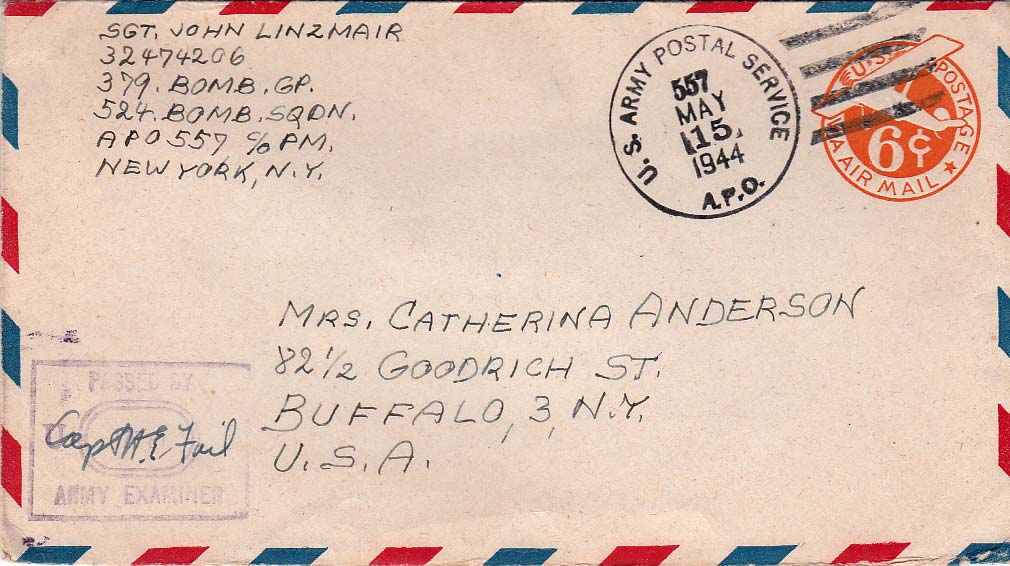 SGT. JOHN LINZMAIR
32474206
379. BOMB. GP.
524. BOMB. SQDN.
APO 557 c/o PM.
NEW YORK, N.Y.
U.S. ARMY POSTAL SERVICE
557
MAY
15
1944
A.P.O.
U.S. POSTAGE
6¢
VIA AIR MAIL
MRS. CATHERINA ANDERSON
82 1/2 GOODRICH ST.
BUFFALO, 3, N.Y.
U.S.A.
PASSED BY
Capt H.E. Fail
ARMY EXAMINER